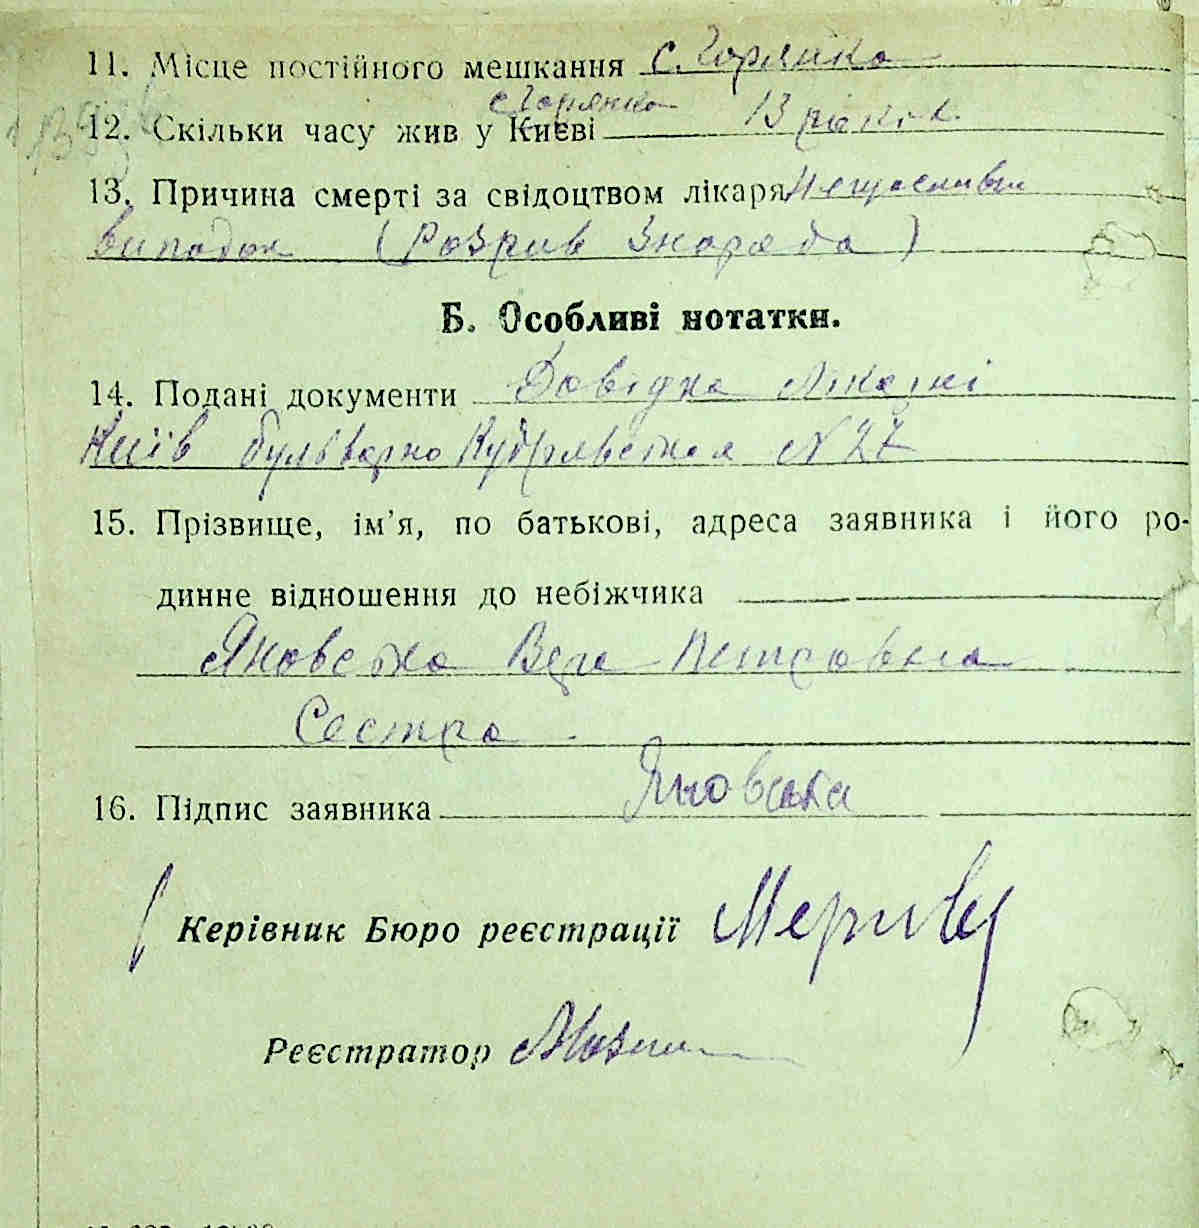 11. Місце постійного мешкання с. Горянка
с Горянка 13 років
12. Скільки часу жив у Київі
13. Причина смерті за свідоцтвом лікаря Нещасливи
випадок (Розрив Знаряда)
Б. Особливі нотатки.
14. Подані документи Довідка Лікарні
Київ бульварно Кудрявська N 27
15. Прізвище, ім'я, по батькові, адреса заявника і його ро-
динне відношення до небіжчика
Яновська Вера Петровна
Сестра
16. Підпис заявника Яновська
Керівник Бюро реєстрації
Реєстратор